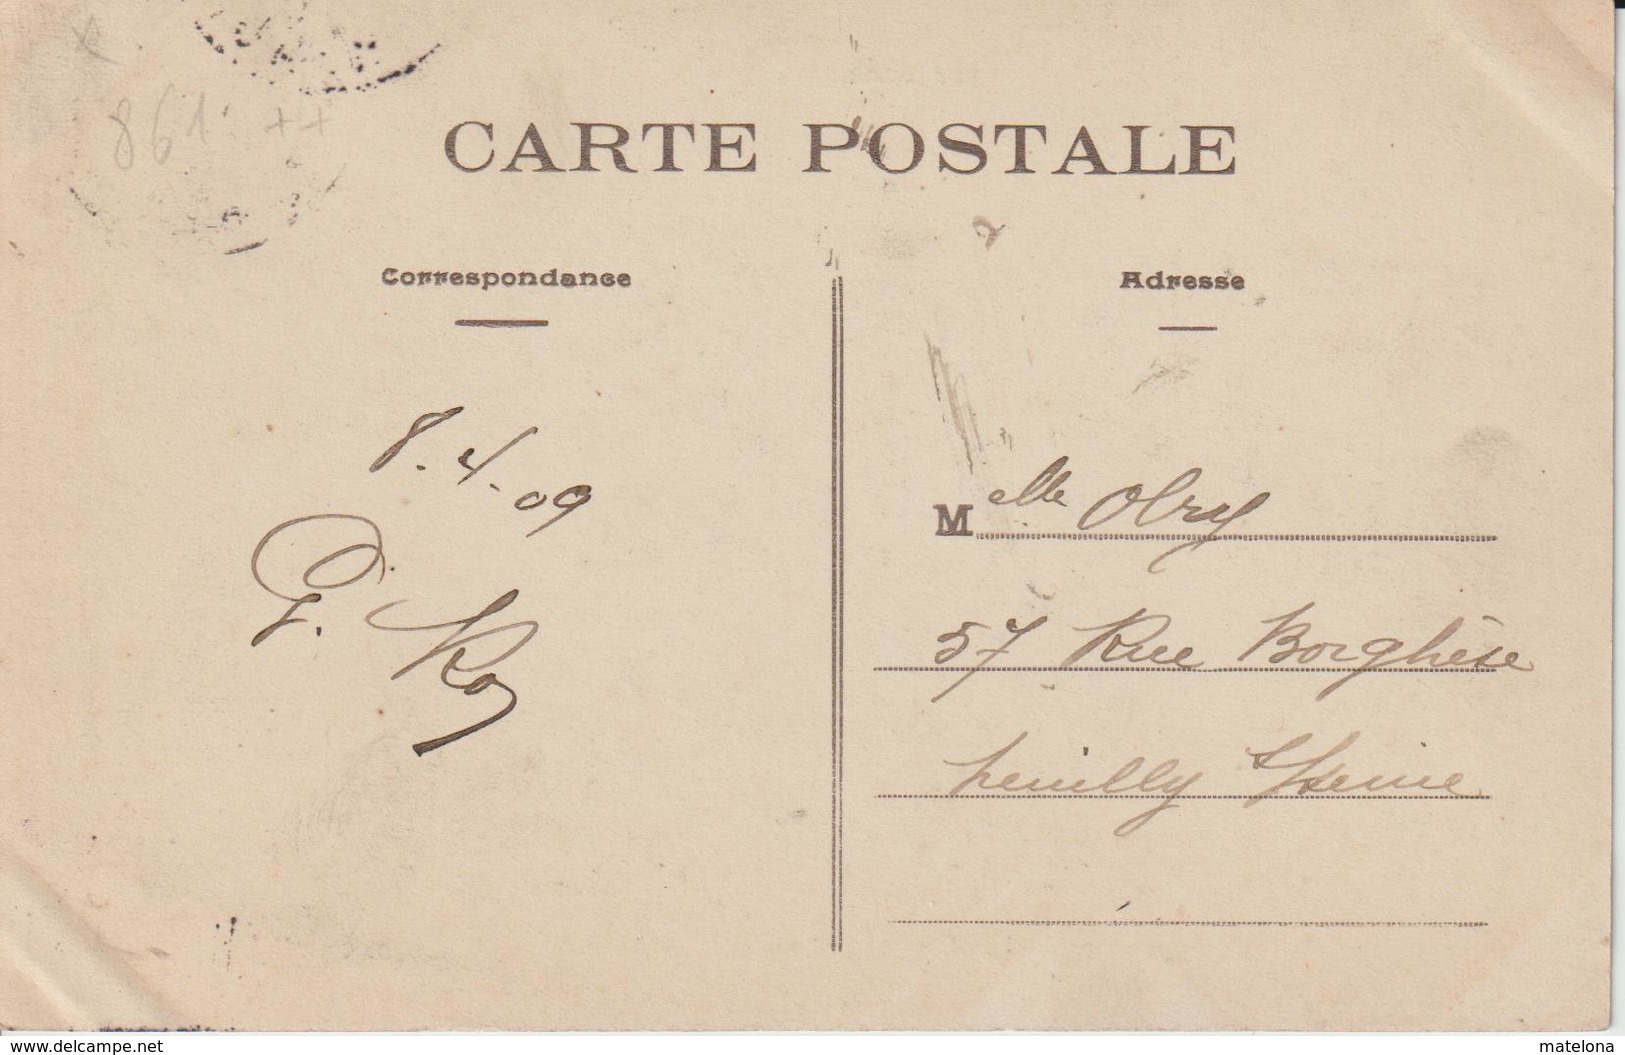 861 ++
CARTE POSTALE
Correspondance
Adresse
8.4.09
G. Roy
Melle Olry
57 Rue Borghèse
Neuilly s/Seine
www.delcampe.net
matelona